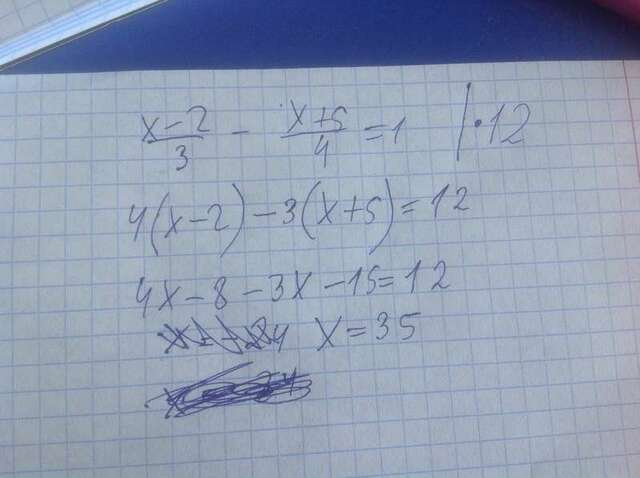 x-2/3 - x+5/4 = 1 |·12
4(x-2)-3(x+5)=12
4x-8-3x-15=12
x=35